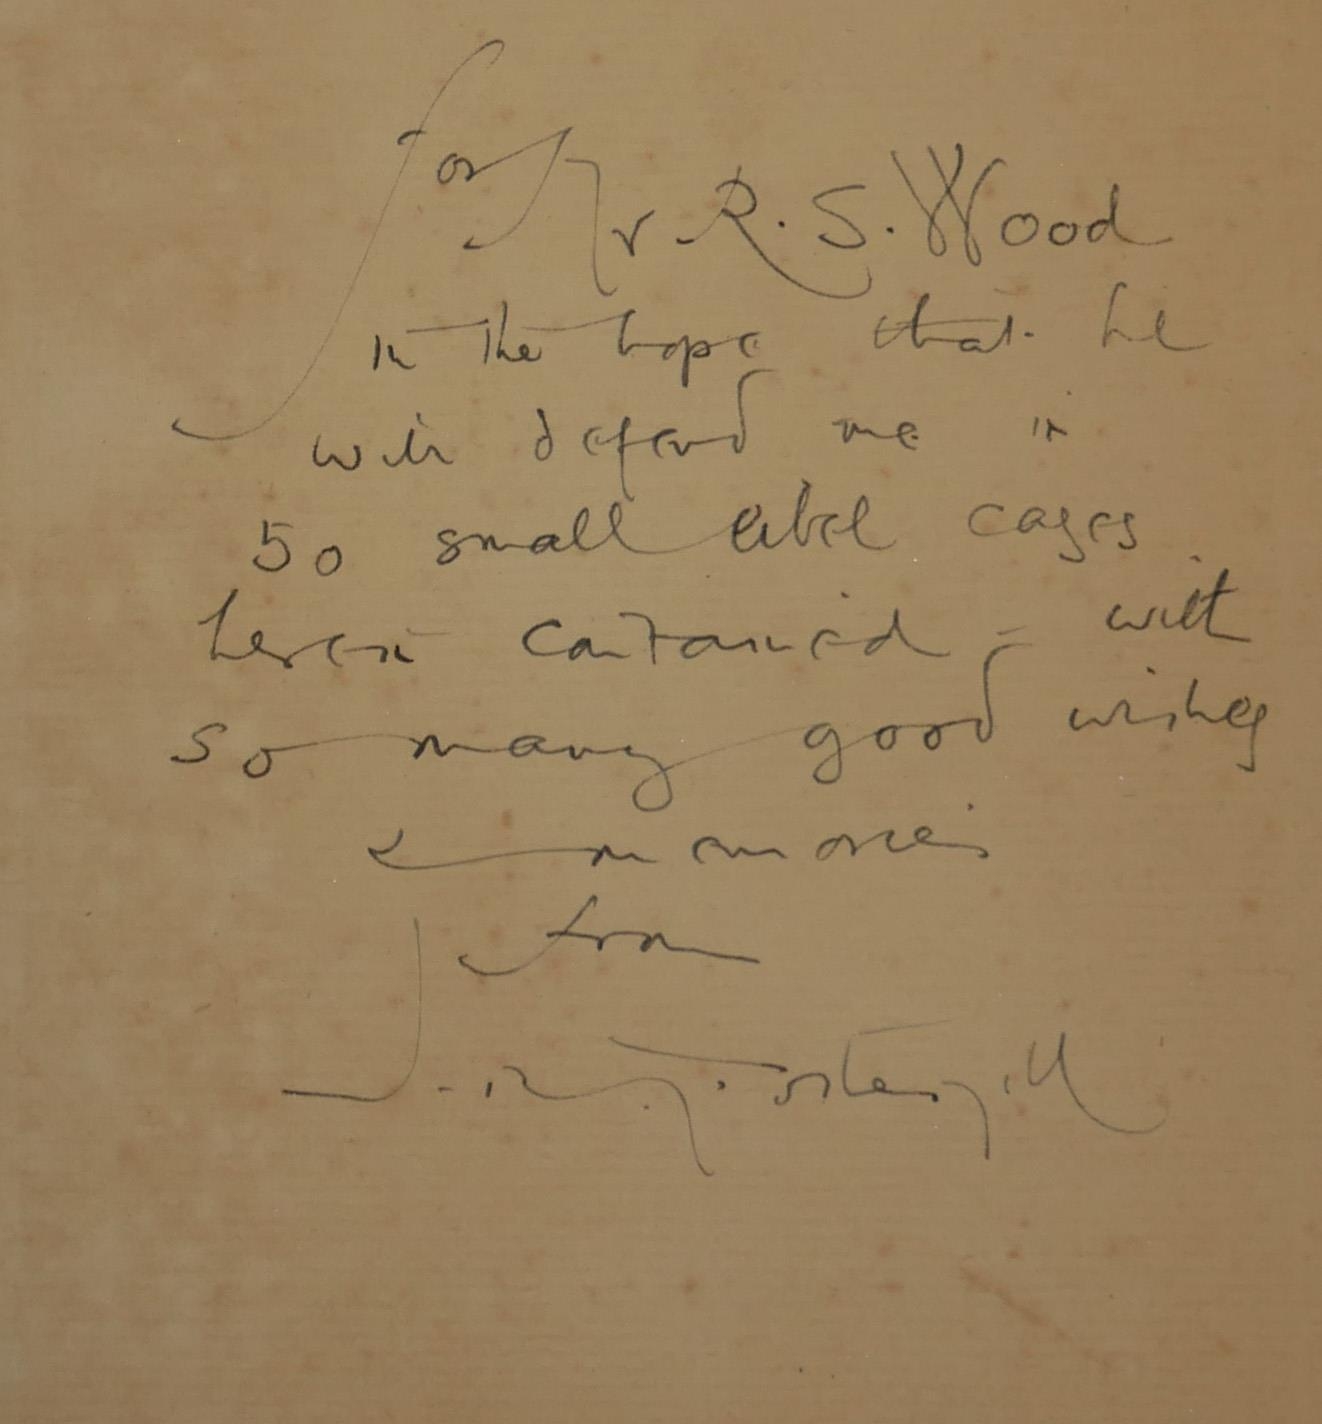 for Mr R. S. Wood
in the hope that he
will defend me in
50 small libel cases
herein contained - with
so many good wishes
& memories
from
J. R. Fothergill